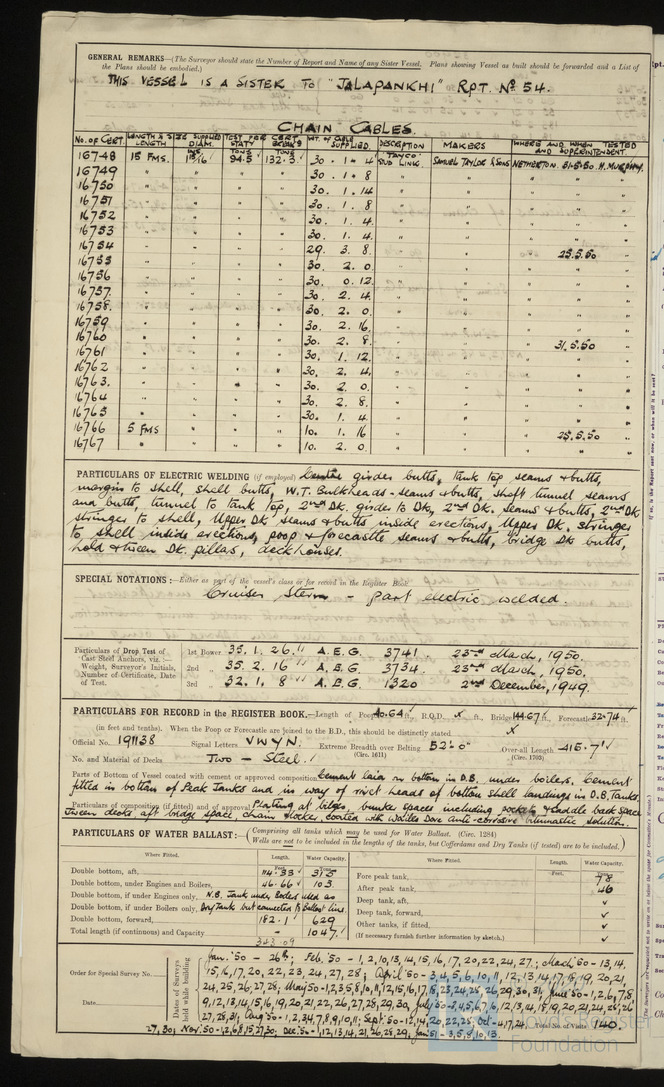 GENERAL REMARKS—(The Surveyor should state the Number of Report and Name of any Sister Vessel. Plans showing Vessel as built should be forwarded and a List of
the Plans should be embodied.)
THIS VESSEL IS A SISTER TO "JALAPANKHI" RPT. No 54.
CHAIN CABLES.
No. OF CERT. LENGTH & SIZE SUPPLIED LENGTH DIAM. TEST PER CERT. STATY BREAKG WT. OF CABLE SUPPLIED. DESCRIPTION MAKERS WHERE AND WHEN TESTED AND SUPERINTENDENT.
16748 15 FMS. 94.5 132.3 30 . 1 . 4 STUD LINK. SAMUEL TAYLOR & SONS NETHERTON. 31.5.50. H. MURPHY.
16749 " " " " 30 . 1 . 8 " " " " "
16750 " " " " 30 . 1 . 14 " " " " "
16751 " " " " 30 . 1 . 8 " " " " "
16752 " " " " 30 . 1 . 4. " " " " "
16753 " " " " 30 . 1 . 4. " " " " "
16754 " " " " 29 . 3 . 8. " " " 25.5.50 "
16755 " " " " 30 . 2 . 0. " " " " "
16756 " " " " 30 . 0 . 12. " " " " "
16757 " " " " 30 . 2 . 4. " " " " "
16758 " " " " 30 . 2 . 0. " " " " "
16759 " " " " 30 . 2 . 16. " " " " "
16760 " " " " 30 . 2 . 8. " " " 31.5.50 "
16761 " " " " 30 . 1 . 12. " " " " "
16762 " " " " 30 . 2 . 4. " " " " "
16763 " " " " 30 . 2 . 0. " " " " "
16764 " " " " 30 . 2 . 8. " " " " "
16765 " " " " 30 . 1 . 4. " " " " "
16766 5 FMS " " " 10 . 1 . 16 " " " 25.5.50 "
16767 " " " " 10 . 2 . 0. " " " " "
PARTICULARS OF ELECTRIC WELDING (if employed) Centre girder butts, tank top seams & butts,
margin to shell, shell butts, W.T. Bulkheads - seams & butts, shaft tunnel seams
and butts, tunnel to tank top, 2nd Dk. girder to Dk, 2nd Dk. seams & butts, 2nd Dk
stringer to shell, Upper Dk seams & butts inside erections, Upper Dk. stringer
to shell inside erections, poop & forecastle seams & butts, bridge Dk butts,
hold & tween Dk. pillars, deckhouses.
SPECIAL NOTATIONS:—Either as part of the vessel's class or for record in the Register Book
Cruiser Stern - part electric welded.
Particulars of Drop Test of Cast Steel Anchors, viz.:— Weight, Surveyor's Initials, Number of Certificate, Date of Test.
1st Bower 35 . 1 . 26 . A.E.G. 3741 . 23rd March, 1950.
2nd " 35 . 2 . 16 A.E.G. 3734 . 23rd March, 1950.
3rd " 32 . 1 . 8 A.E.G. 1320 2nd December, 1949.
PARTICULARS FOR RECORD in the REGISTER BOOK.—Length of Poop 40.64 ft., R.Q.D. x ft., Bridge 144.67 ft., Forecastle 32.74 ft.
(in feet and tenths). When the Poop or Forecastle are joined to the B.D., this should be distinctly stated x
Official No. 191138 Signal Letters VWYN. Extreme Breadth over Belting 52'-0" (Circ. 1611) Over-all Length 415.7' (Circ. 1703)
No. and Material of Decks Two - Steel.
Parts of Bottom of Vessel coated with cement or approved composition Cement laid in bottom in D.B. under boilers. Cement
fitted in bottom of Peak Tanks and in way of rivet heads of bottom shell landings in D.B. Tanks.
Particulars of composition (if fitted) and of approval Plating at bilges, bunker spaces including pockets & saddle back space
Tween decks aft bridge space, chain locker coated with Wailes Dove Anti-corrosive bitumastic solution.
PARTICULARS OF WATER BALLAST:— (Comprising all tanks which may be used for Water Ballast. (Circ. 1284)
Wells are not to be included in the lengths of the tanks, but Cofferdams and Dry Tanks (if tested) are to be included.)
Where Fitted. Length. Water Capacity. Where Fitted. Length. Water Capacity.
Double bottom, aft, 114.33 315 Fore peak tank, 78
Double bottom, under Engines and Boilers, 46.66 103 After peak tank, 46
Double bottom, if under Engines only, N.B. Tank under Boilers used as Deep tank, aft,
Double bottom, if under Boilers only, Dry Tank but connected to Ballast line. Deep tank, forward,
Double bottom, forward, 182.1 629 Other tanks, if fitted,
Total length (if continuous) and Capacity - 1047 (If necessary furnish further information by sketch.)
343.09
Order for Special Survey No.
Date
Dates of Surveys held while building
Jan. '50 - 26th; Feb. '50 - 1, 2, 10, 13, 14, 15, 16, 17, 20, 22, 24, 27.; March '50 - 13, 14,
15, 16, 17, 20, 22, 23, 24, 27, 28; April '50 - 3, 4, 5, 6, 10, 11, 12, 13, 14, 17, 18, 19, 20, 21,
24, 25, 26, 27, 28; May '50 - 1, 2, 3, 5, 8, 10, 11, 12, 15, 16, 17, 18, 23, 24, 25, 26, 29, 30, 31; June '50 - 1, 2, 6, 7, 8
9, 12, 13, 14, 15, 16, 19, 20, 21, 22, 26, 27, 28, 29, 30, July '50 - 3, 4, 5, 6, 7, 6, 12, 13, 14, 18, 19, 20, 21, 24, 25, 26
27, 28, 31; Aug '50 - 1, 2, 3, 4, 7, 8, 9, 10, 11; Sept. '50 - 12, 14, 20, 22, 28; Oct - 4, 17, 24,
27, 30; Nov. '50 - 1, 2, 6, 8, 15, 27, 30; Dec. '50 - 1, 12, 13, 14, 21, 26, 28, 29, Jan 51 - 3, 5, 8, 10, 13.
Total No. of Visits 140.
Lloyd's Register
Foundation